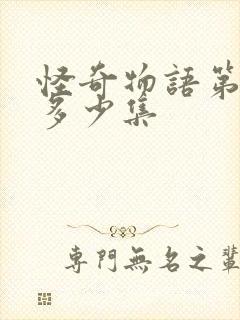 怪奇物語第
多少集
專門無名之輩